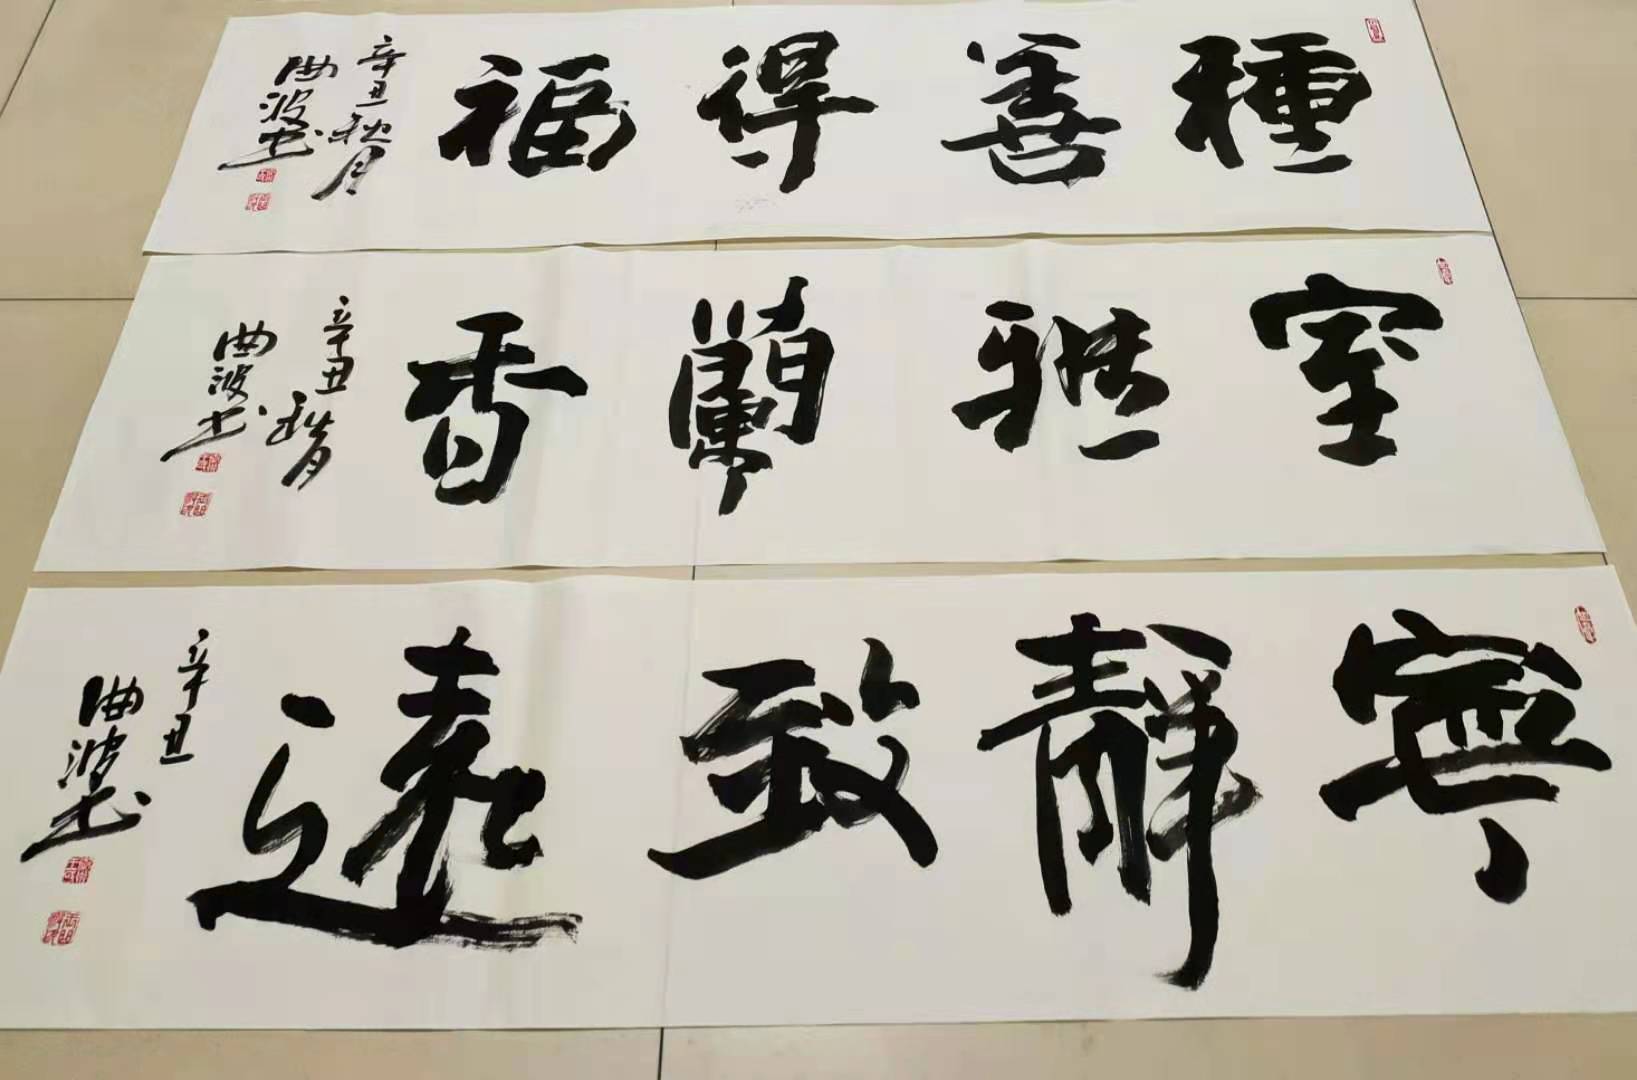 種善得福
辛丑秋月
曲波书
室雅蘭香
辛丑
曲波书
寧靜致遠
辛丑
曲波书